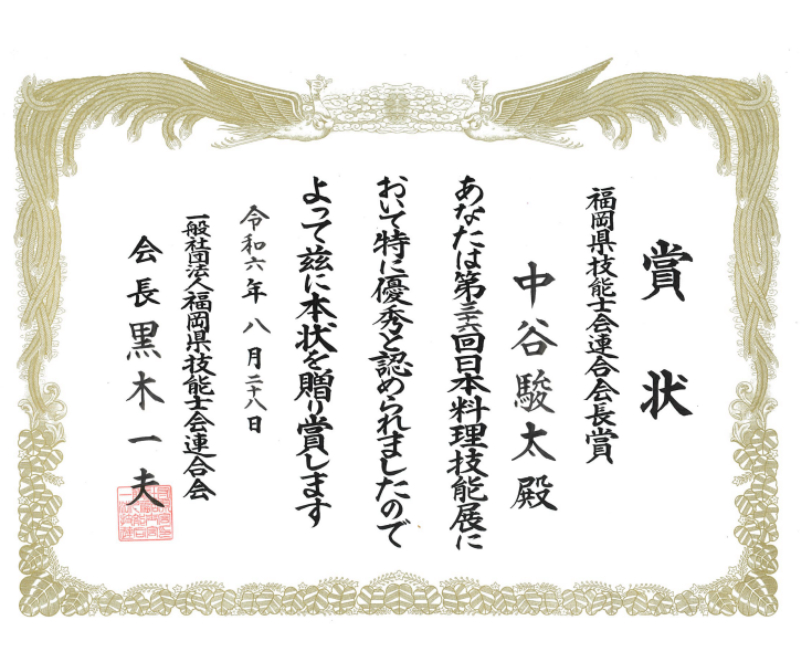 賞状
福岡県技能士会連合会長賞
中谷駿太殿
あなたは第三六回日本料理技能展に
おいて特に優秀と認められましたので
よって茲に本状を贈り賞します
令和六年八月二十八日
一般社団法人福岡県技能士会連合会
会長黒木一夫